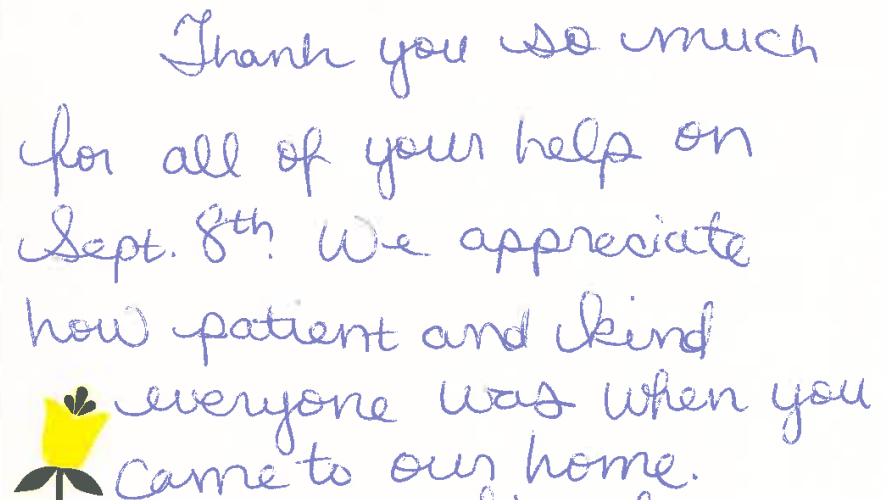 Thank you so much
for all of your help on
Sept. 8th! We appreciate
how patient and kind
everyone was when you
came to our home.